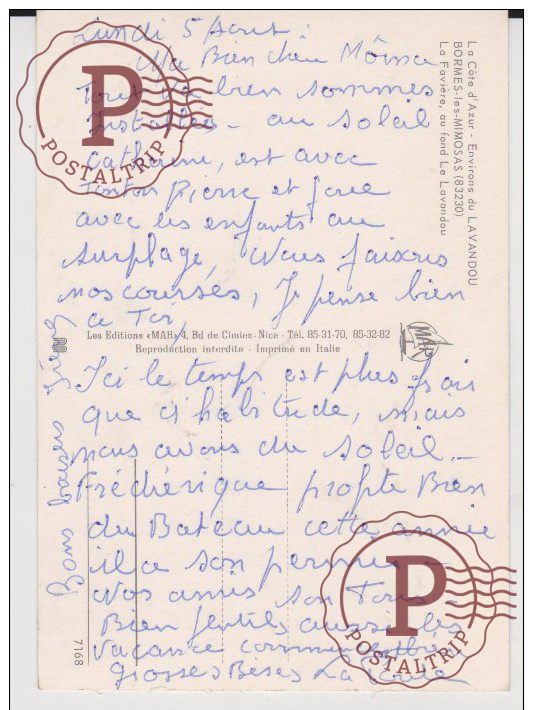 Lundi 5 Aout
Ma Bien chère Môma
Tout va bien sommes
Installés - au soleil
Catherine, est avec
Tonton Pierre et joue
avec les enfants au
surplage, Nous faisons
nos courses, Je pense bien
a Toi,
Ici le temps est plus frais
que d'habitude, mais
nous avons du soleil -
Frédérique profite Bien
du Bateau cette année
il a son permis -
Nos amis son Tous
Bien gentils aussi les
vacance commence
grosses Bises La
Bons baisers
La Côte d'Azur - Environs du LAVANDOU
BORMES-les-MIMOSAS (83230)
La Favière, au fond Le Lavandou
Les Editions «MAR» 4, Bd de Cimiez - Nice - Tél. 85-31-70, 85-32-82
Reproduction interdite - Imprimé en Italie
MAR
7168
P
POSTALTRIP
P
POSTALTRIP